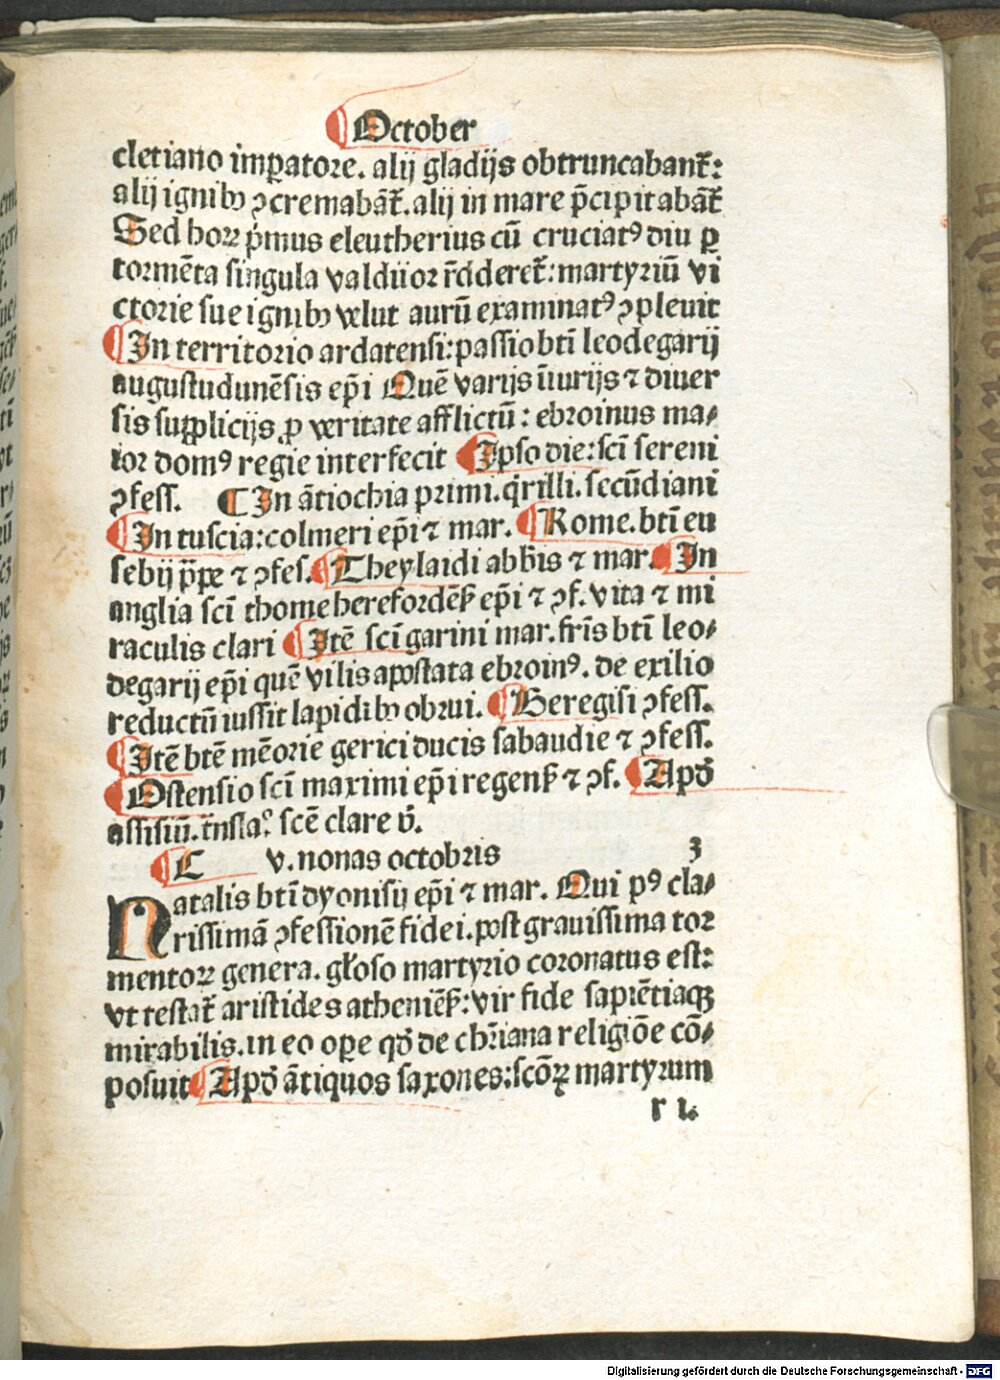 October
cletiano imꝑatore. alij gladijs obtruncabant̃:
alij ignibꝰ ꝯcremabãt̃. alij in mare p̃cipitabãt̃
Sed hoꝝ p̃mus eleutherius cũ cruciatꝰ diu ꝑ
tormẽta singula validior r̃dderet̃: martyriũ vi
ctorie sue ignibꝰ velut aurũ examinatꝰ ꝯpleuit
¶ In territorio ardatensi: passio bti̇̃ leodegarij
augustudunẽsis ep̃i Quẽ varijs iniurijs ⁊ diuer
sis supplicijs ꝓ veritate afflictũ: ebroinus ma⸗
ior domꝰ regie interfecit ¶ Ipso die: sc̃i sereni
ꝯfess. ¶ In ãtiochia primi. q̇rilli. secũdiani
¶ In tuscia: colmeri ep̃i ⁊ mar. ¶ Rome. bt̃i eu
sebij p̃pe ⁊ ꝯfes. ¶ Theylaidi abb̃is ⁊ mar. ¶ In
anglia sc̃i thome herefordẽẜ ep̃i ⁊ ꝯf. vita ⁊ mi
raculis clari ¶ Itẽ sc̃i garini mar. fr̃is bt̃i leo⸗
degarij ep̃i quẽ vilis apostata ebroinꝰ. de exilio
reductũ iussit lapidibꝰ obrui. ¶ Beregisi ꝯfess.
¶ Itẽ btẽ mẽorie gerici ducis sabaudie ⁊ ꝯfess.
¶ Ostensio sc̃i maximi ep̃i regenẜ ⁊ ꝯf. ¶ Apđ
assisiũ. t̃nsla. scẽ clare ṽ.
¶ C v. nonas octobris 3
Natalis bt̃i dyonisij ep̃i ⁊ mar. Qui pꝰ cla⸗
rissimã ꝯfessionẽ fidei. post grauissima tor
mentoꝝ genera. gɫoso martyrio coronatus est:
vt testat̃ aristides atheniẽẜ: vir fide sapiẽtiaqꝫ
mirabilis. in eo oꝑe qđ de chr̃iana religiõe cõ⸗
posuit ¶ Apđ ãtiquos saxones: scõꝝ martyrum
r i.
Digitalisierung gefördert durch die Deutsche Forschungsgemeinschaft - DFG